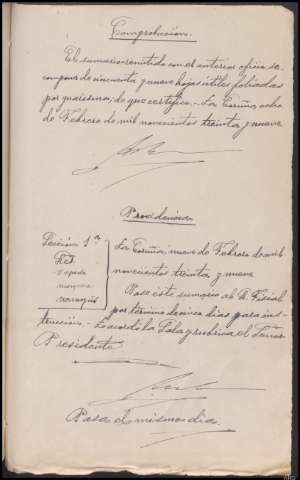 Comprobación.
El sumario remitido con el anterior oficio se
compone de cincuenta y nueve hojas útiles foliadas
por guarismos; de que certifico.- La Coruña ocho
de Febrero de mil novecientos treinta y nueve
Providencia
Sección 1ª
La Coruña, nueve de Febrero de mil
novecientos treinta y nueve
Pase este sumario al M. Fiscal
por término de cinco días para ins-
trucción.- Lo acordó la Sala y rubrica el Señor
Presidente
Pasa el mismo día.